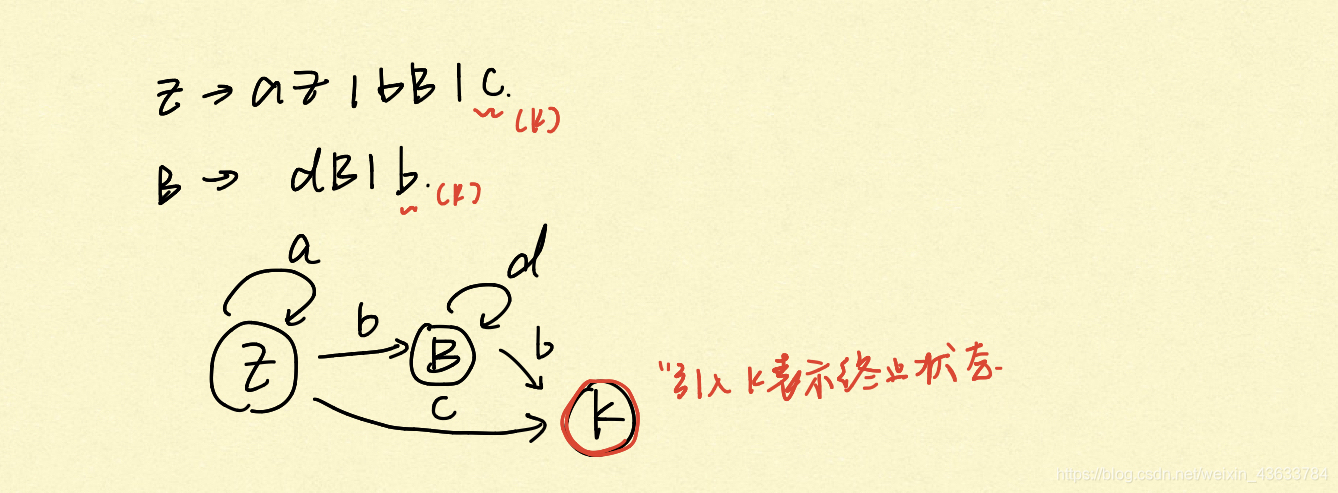 Z → aZ | bB | c. (K)
B → dB | b. (K)
a
d
b
b
Z
B
c
K
"引入 K表示终止状态.
https://blog.csdn.net/weixin_43633784